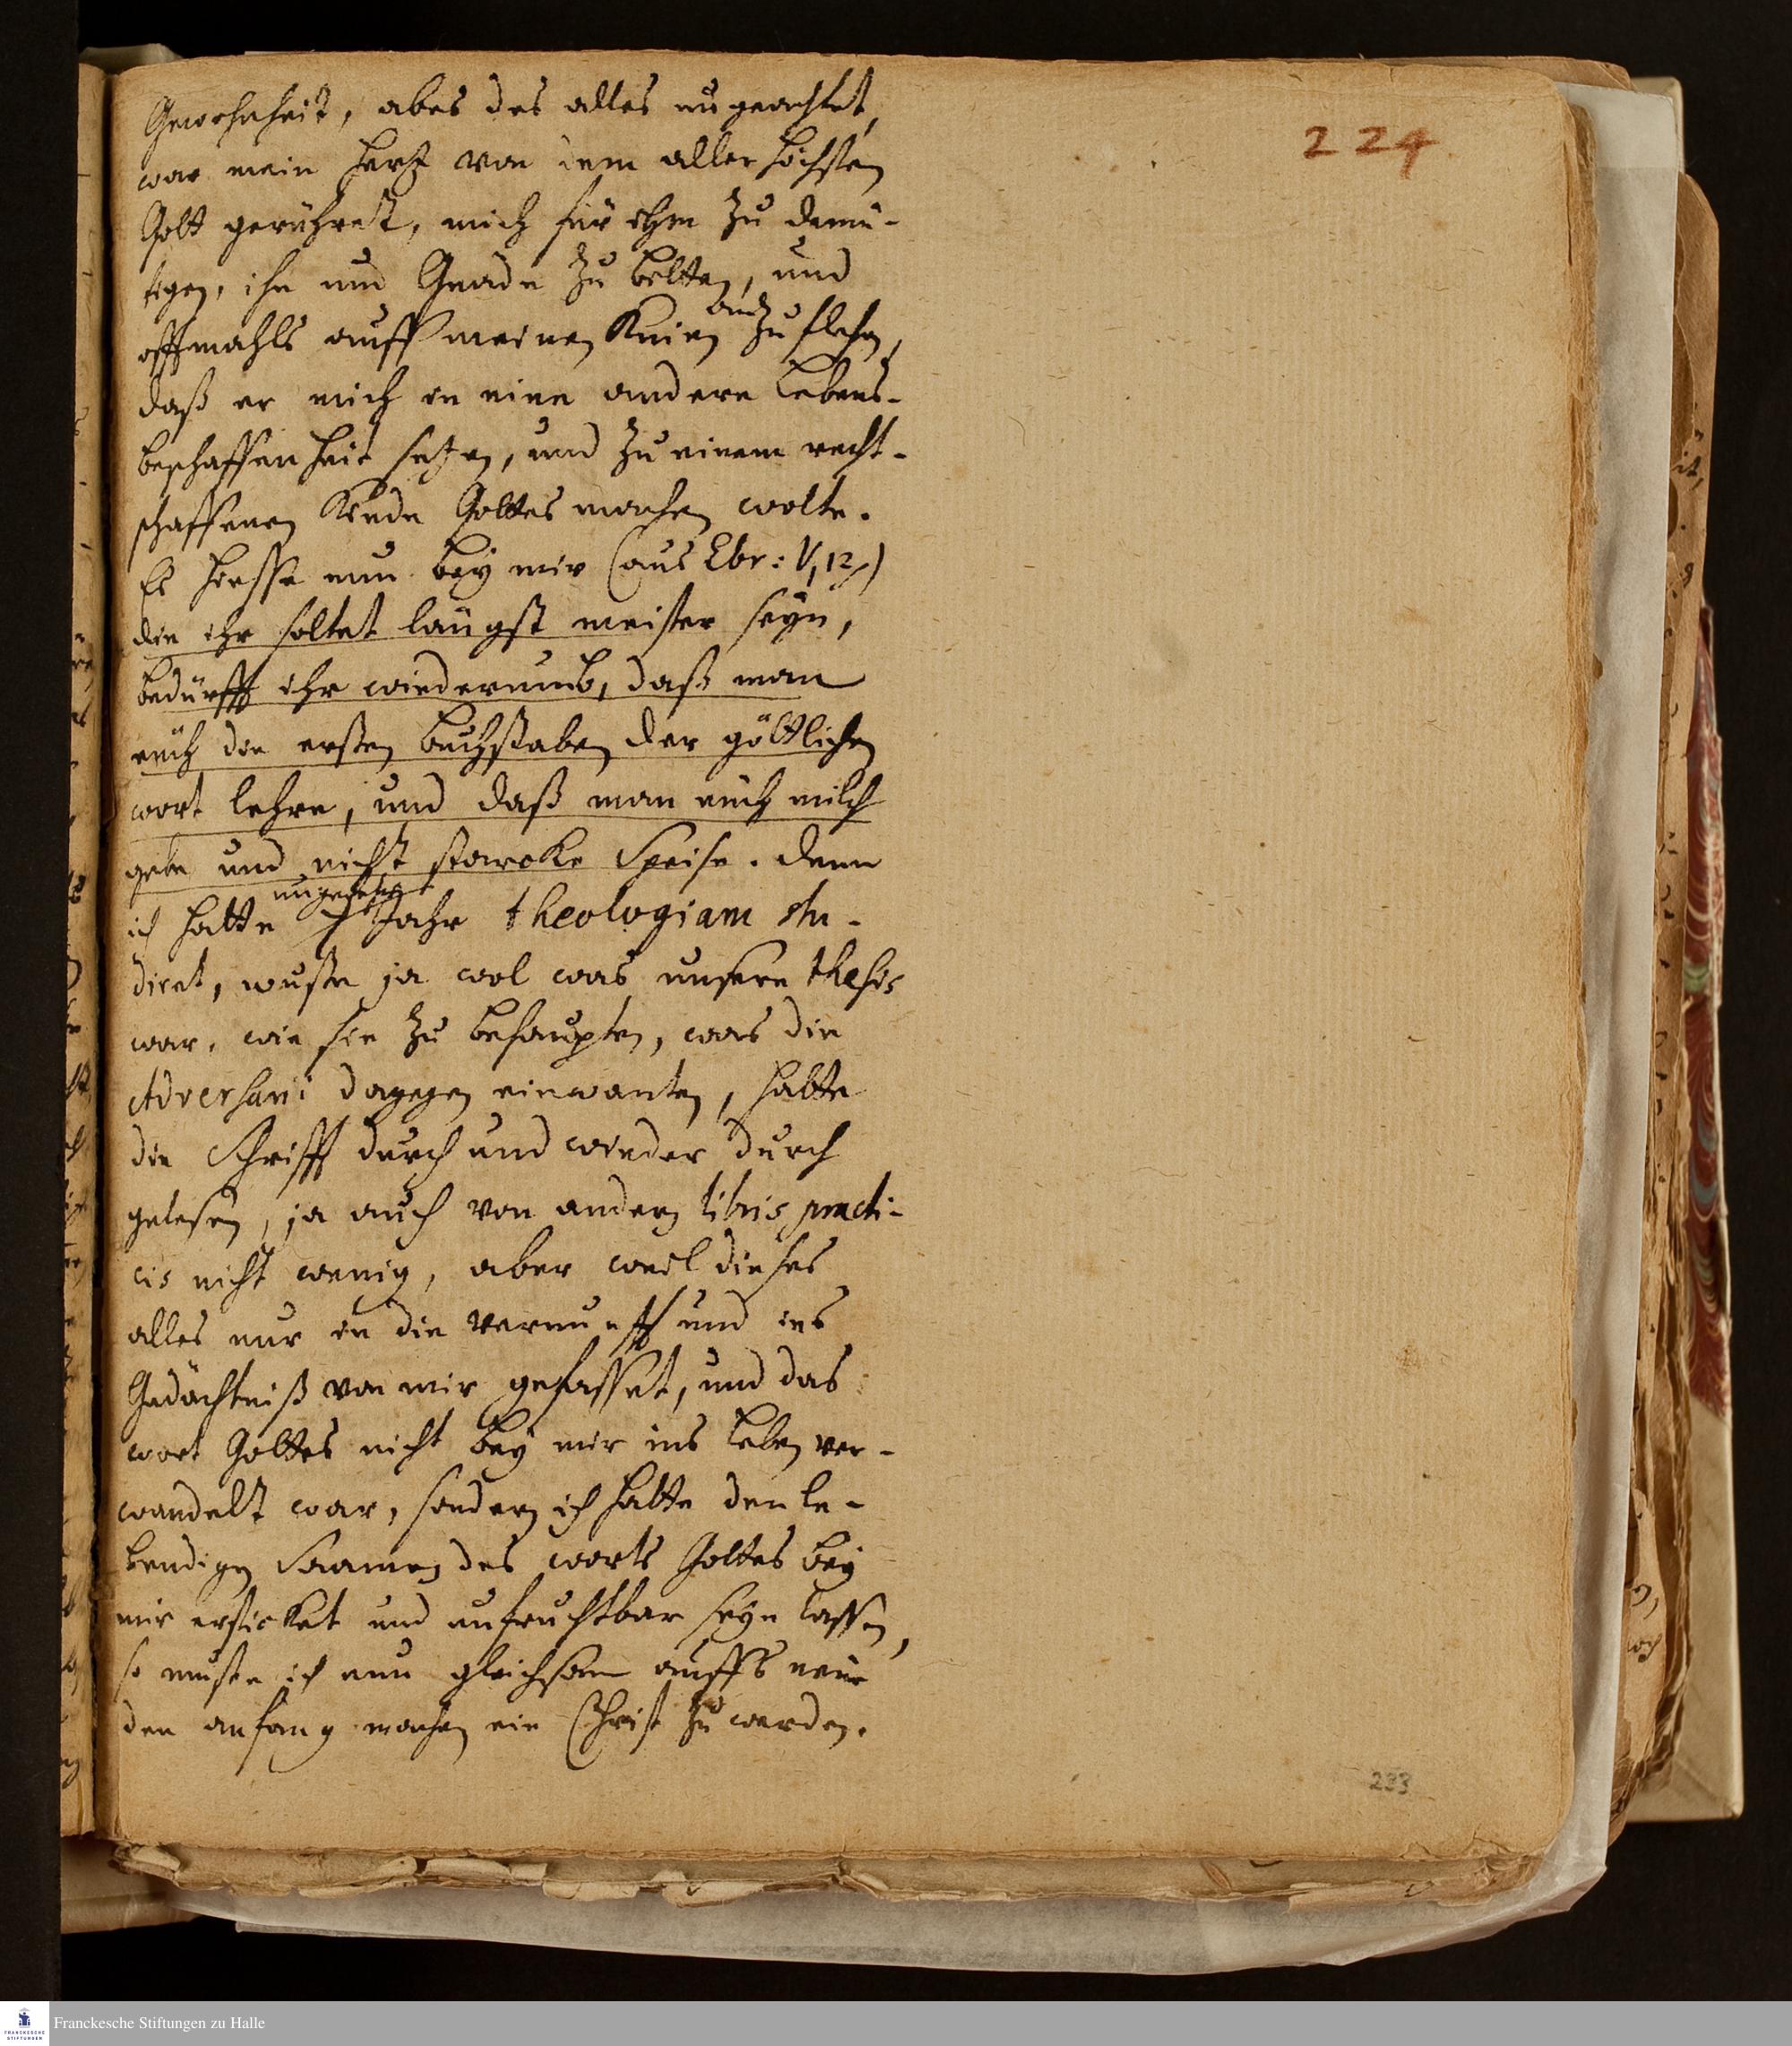 224
Gewohnheit, aber des alles ungeachtet,
war mein Hertz von dem allerhöchsten
Gott gerühret, mich für ihm zu demü-
tigen, ihn umb Gnade zu bitten, und
offtmahls auff meinen Knien auch zu flehen,
daß er mich in eine andere Lebens-
beschaffenheit setzen, und zu einem recht-
schaffenen Kinde Gottes machen wolte.
Es hiesse nun bey mir (aus Ebr: V, 12,)
die ihr soltet längst meister seyn,
bedürfft ihr wiederumb, daß man
euch die ersten buchstaben der göttlichen
wort lehre, und daß man euch milch
gebe und nicht starcke Speise. Denn
ungefehr
ich hatte 7 Jahr theologiam stu-
diret, wuste ja wol was unsere thesis
war, wie sie zu behaupten, was die
Adversarii dagegen einwanten, hatte
die Schrifft durch und wieder durch
gelesen, ja auch von andern libris practi-
cis nicht wenig, aber weil dieses
alles nur in die Vernunfft und ins
Gedächtniß von mir gefasset, und das
wort Gottes nicht bey mir ins Leben ver-
wandelt war, sondern ich hatte den le-
bendigen Saamen des worts Gottes bey
mir ersticket und unfruchtbar seyn lassen,
so muste ich nun gleichsam auffs neue
den anfang machen ein Christ zu werden.
233
FRANCKESCHE
STIFTUNGEN
Franckesche Stiftungen zu Halle